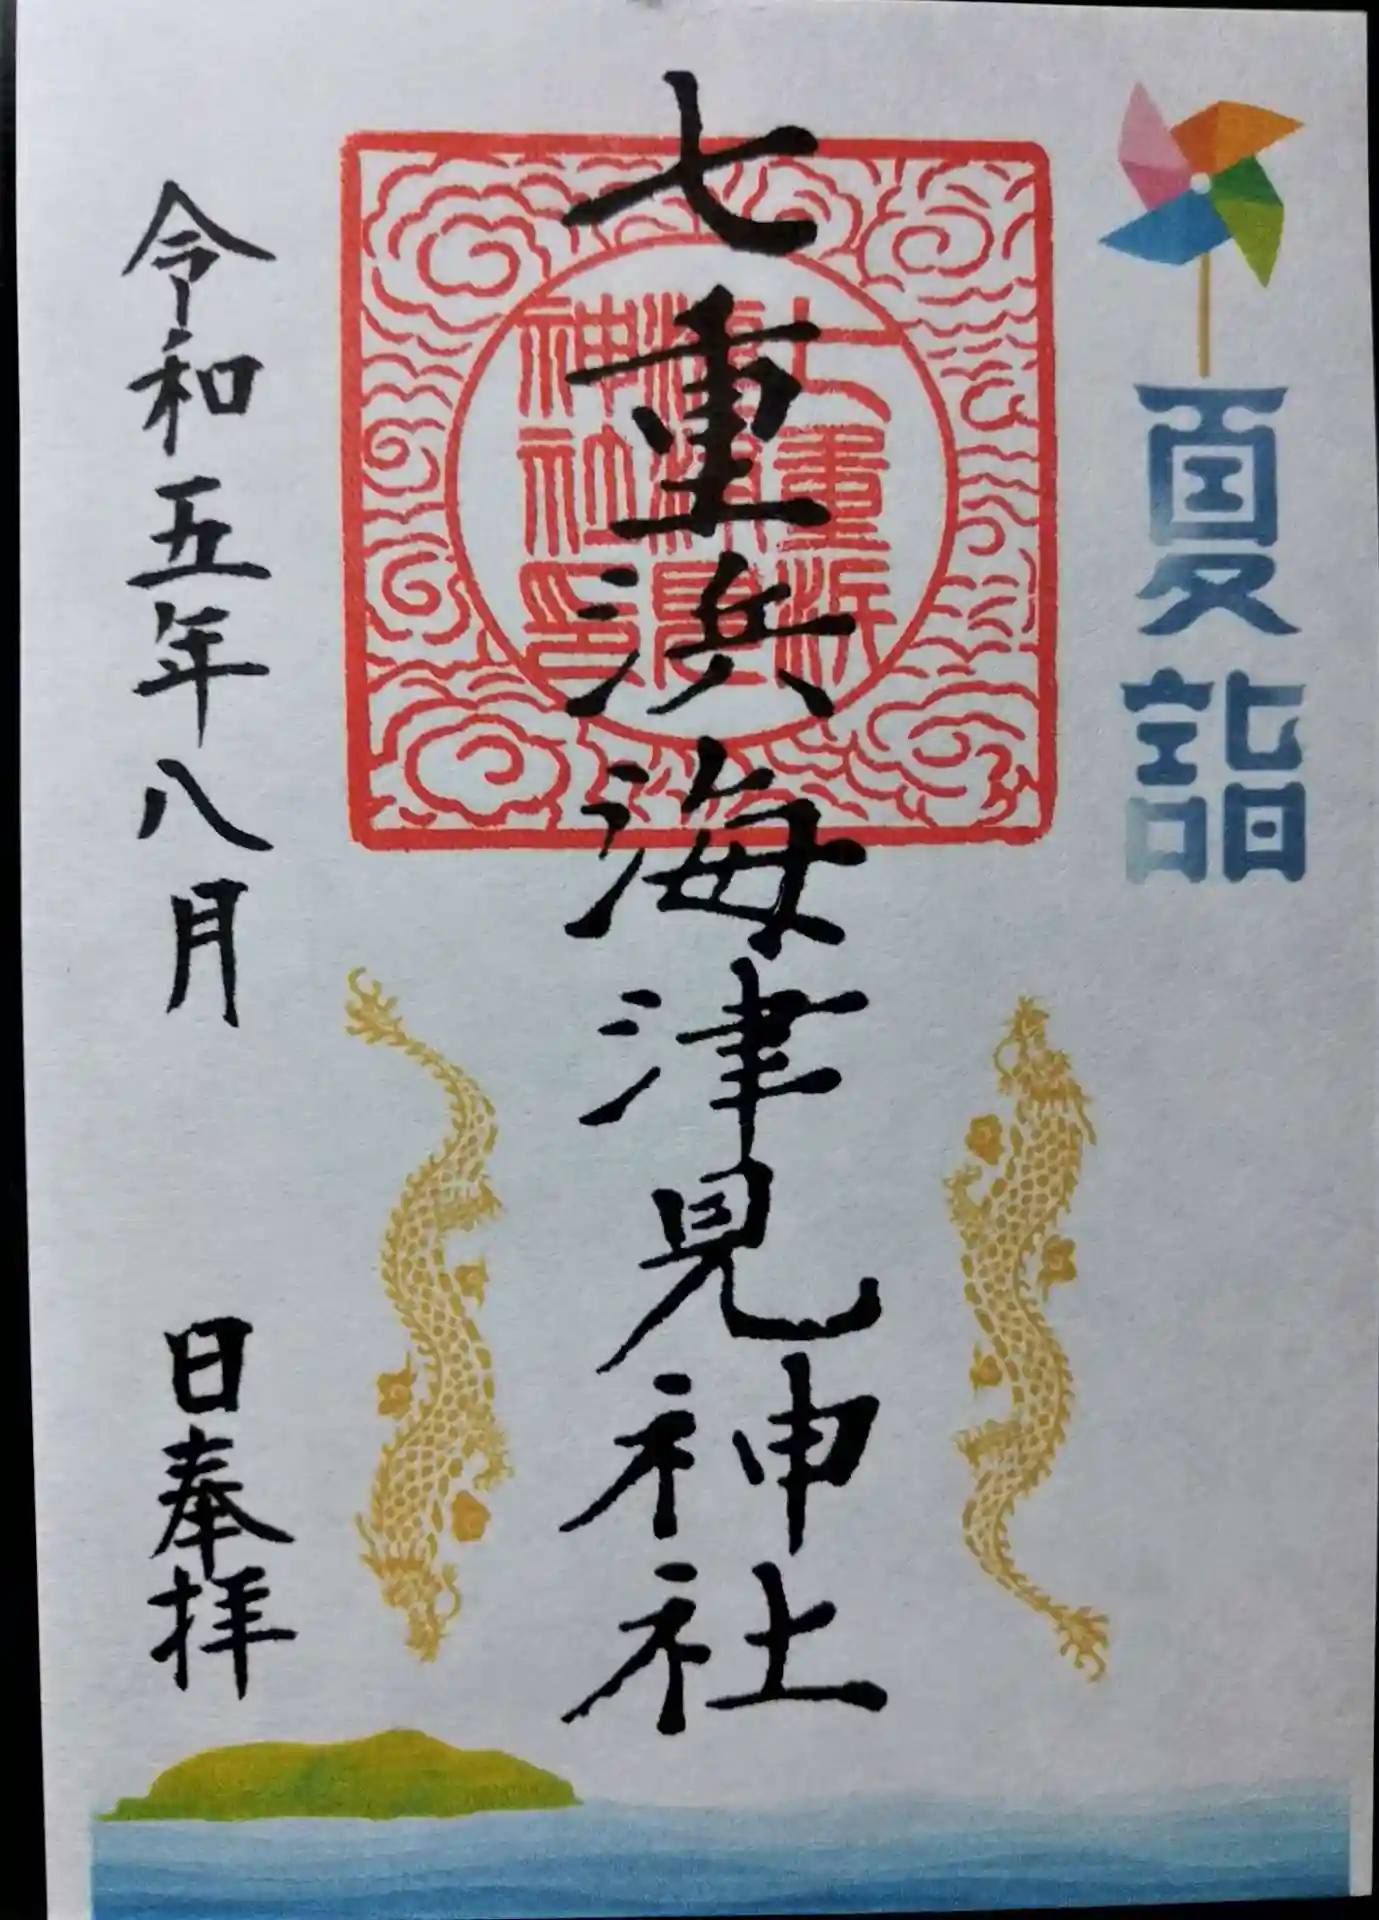 夏詣
七重浜海津見神社
七重浜
海津見
神社印
令和五年八月 日奉拝